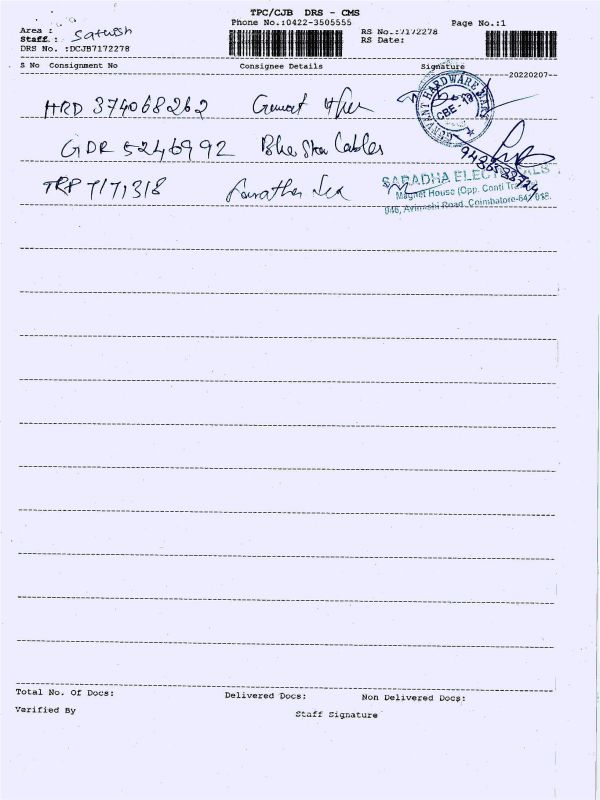 TPC/CJB DRS - CMS
Phone No.:0422-3505555 Page No.:1
Area :
Staff : Satish
DRS No. :DCJB7172278
RS No.:7172278
RS Date:
S No Consignment No Consignee Details Signature
--20220207--
HRD 374068262
GDR 5246992 Bhaskar Cables
TRP 7171318
HARDWARE MART
CBE-18
SARADHA ELECTRICALS
Magnet House (Opp. Conti
946, Avinashi Road, Coimbatore-641 018.
Total No. Of Docs: Delivered Docs: Non Delivered Docs:
Verified By Staff Signature